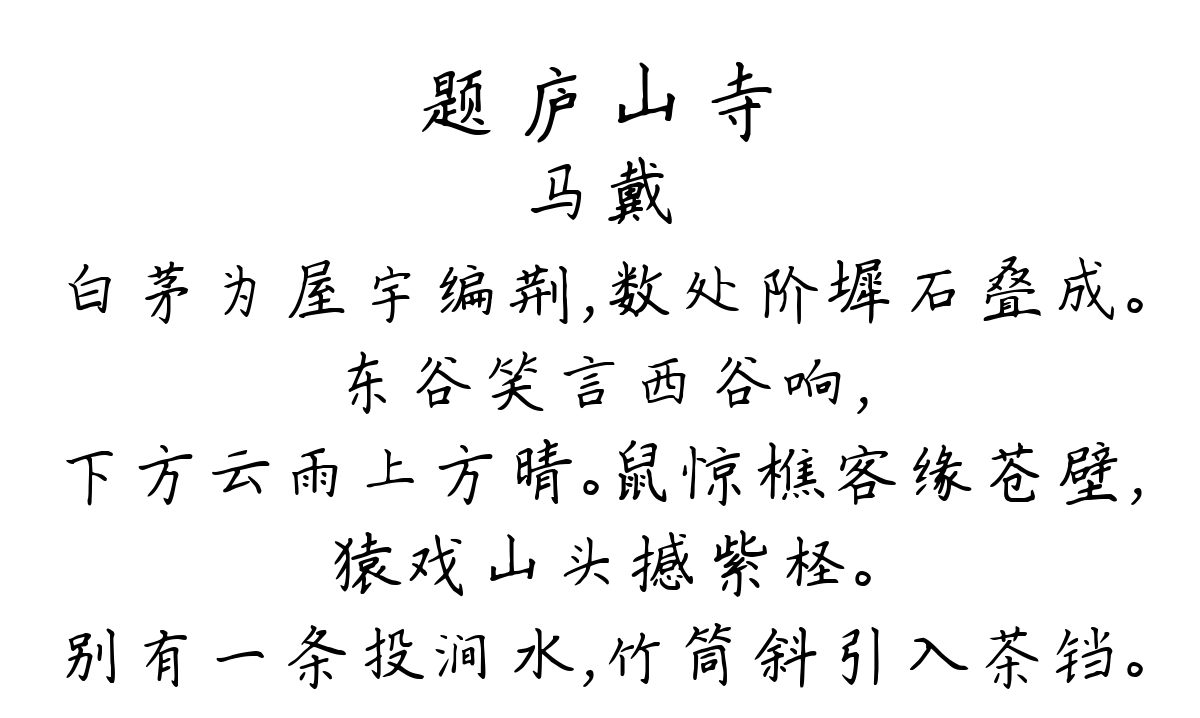 题庐山寺
马戴
白茅为屋宇编荆,数处阶墀石叠成。
东谷笑言西谷响,
下方云雨上方晴。鼠惊樵客缘苍壁,
猿戏山头撼紫柽。
别有一条投涧水,竹筒斜引入茶铛。